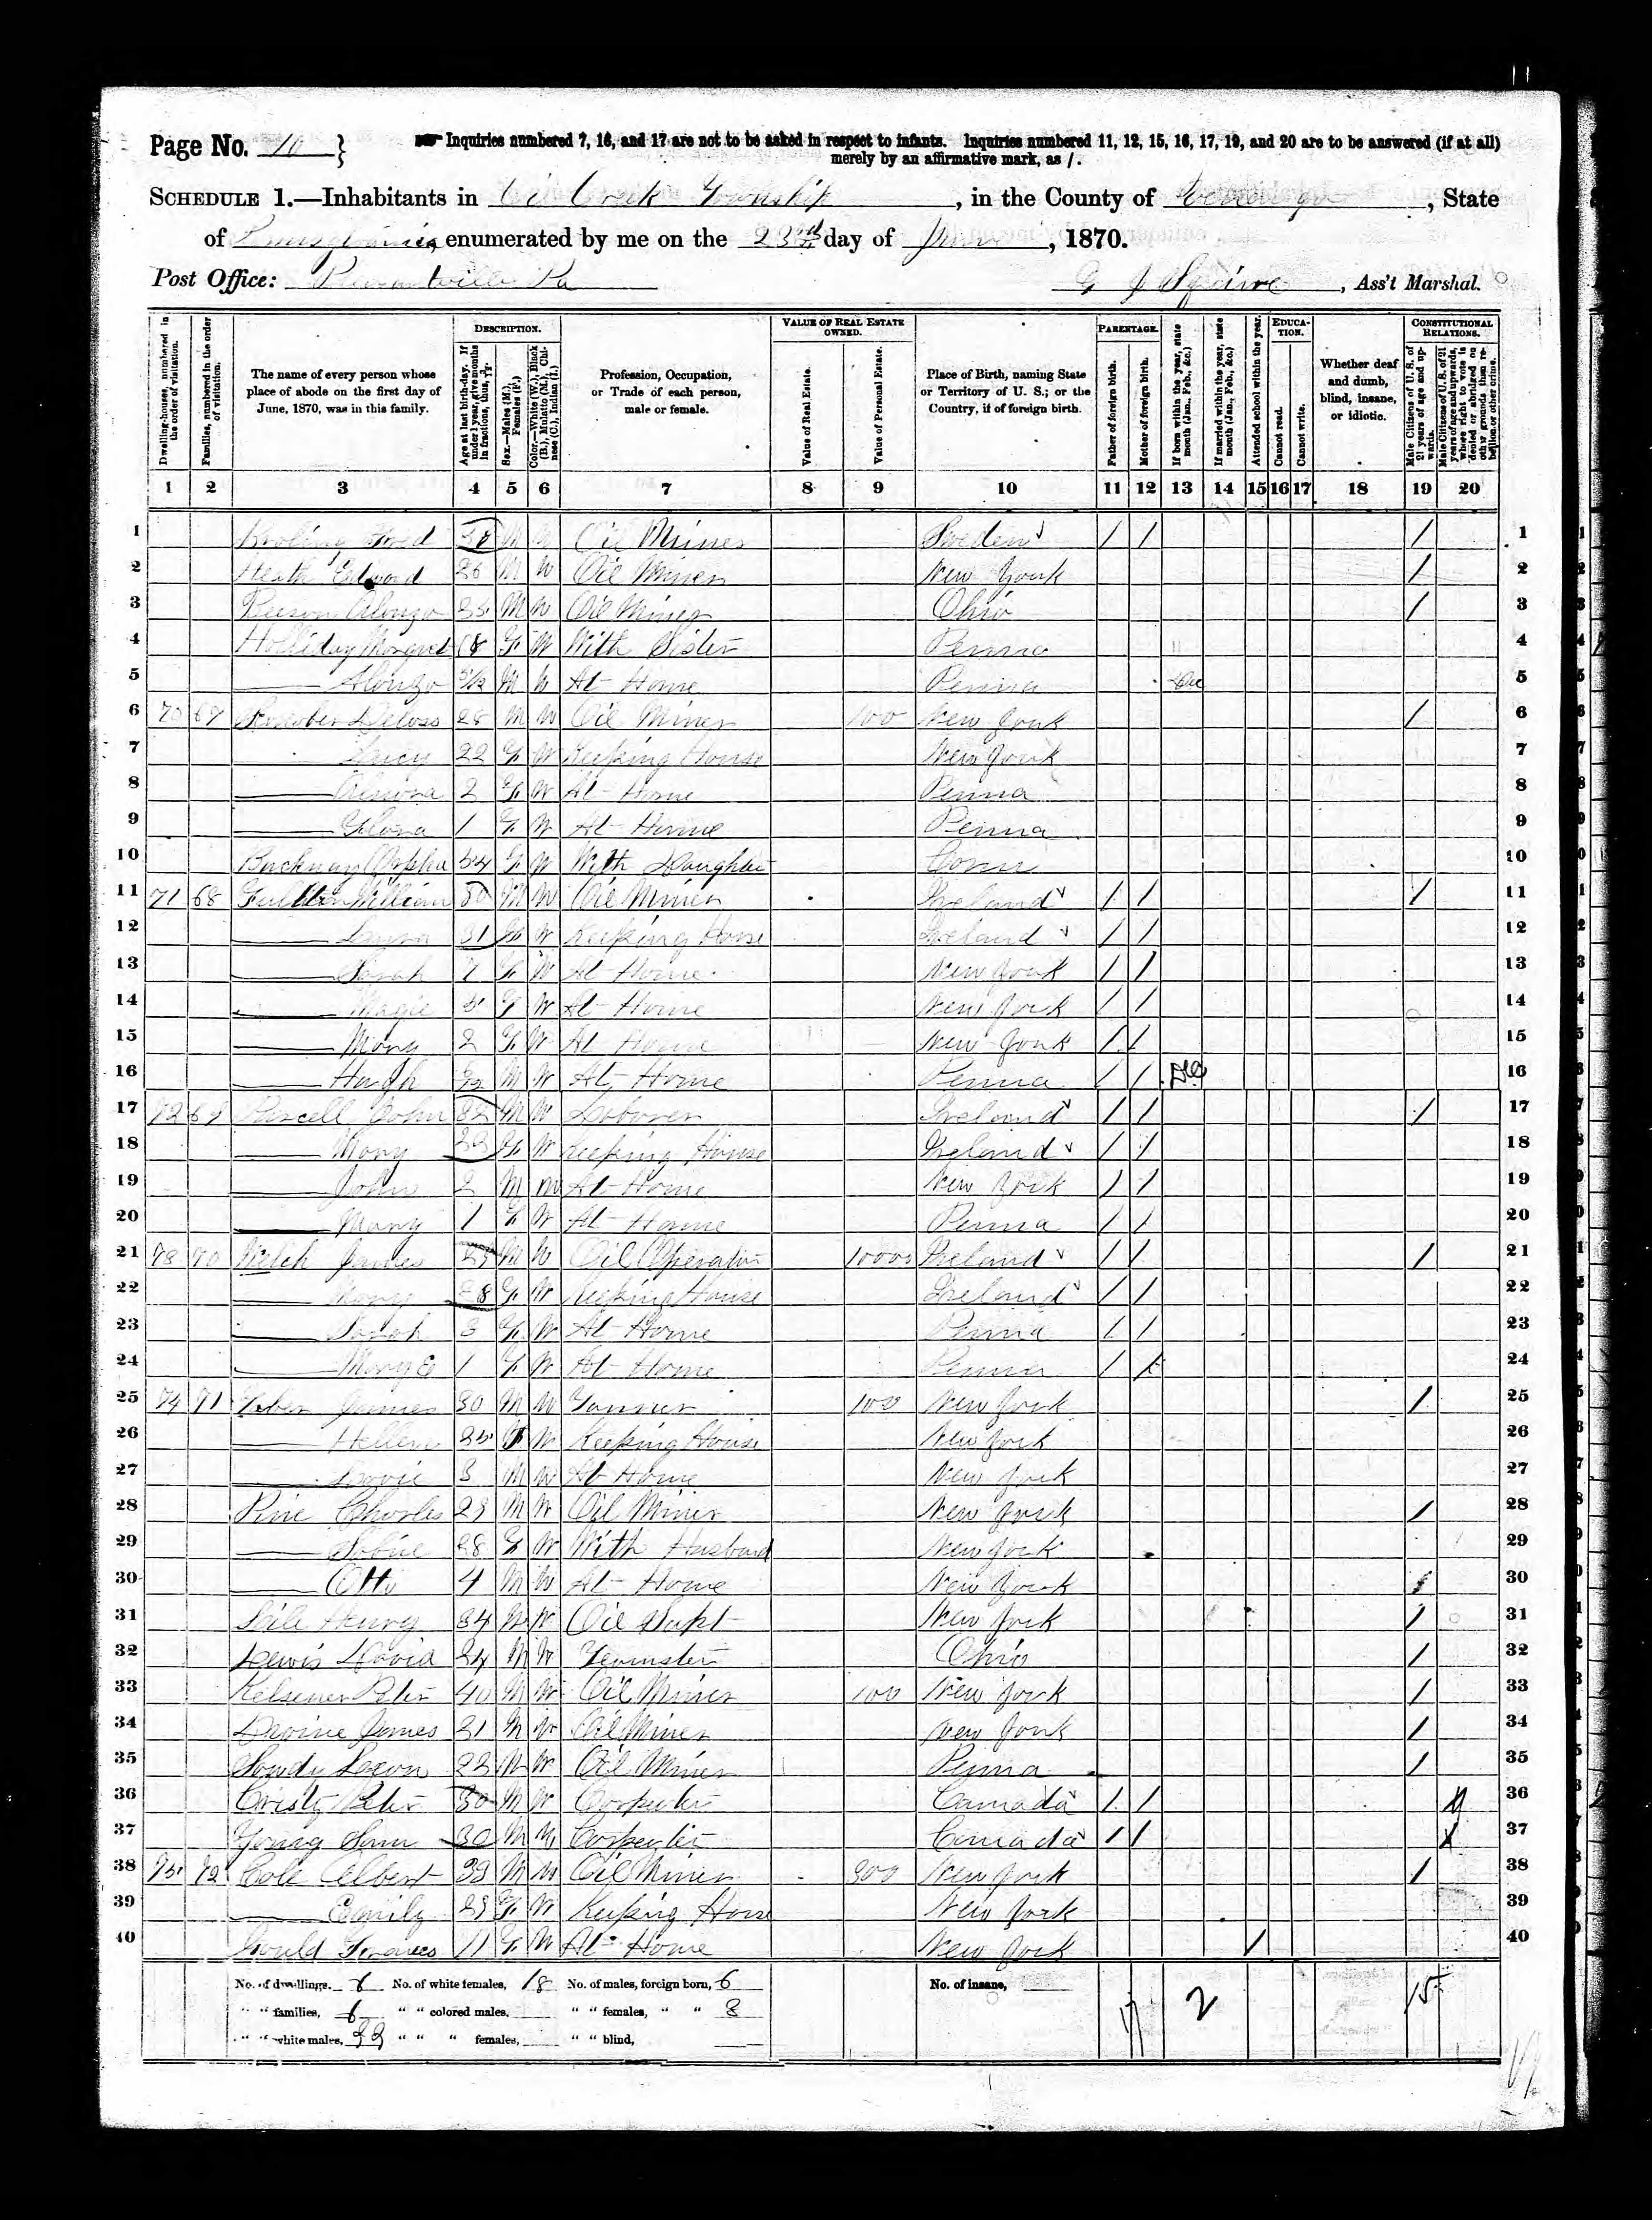 11
Page No. 10 }
☞ Inquiries numbered 7, 16, and 17 are not to be asked in respect to infants. Inquiries numbered 11, 12, 15, 16, 17, 19, and 20 are to be answered (if at all)
merely by an affirmative mark, as /.
SCHEDULE 1.—Inhabitants in Oil Creek Township, in the County of Venango, State
of Pennsylvania, enumerated by me on the 23rd day of June, 1870.
Post Office: Pleasantville Pa
Squire, Ass't Marshal.
Dwelling-houses, numbered in the order of visitation.
Families, numbered in the order of visitation.
The name of every person whose place of abode on the first day of June, 1870, was in this family.
DESCRIPTION.
Age at last birth-day. If under 1 year, give months in fractions, thus, 3/12.
Sex.—Males (M.), Females (F.)
Color.—White (W.), Black (B.), Mulatto (M.), Chinese (C.), Indian (I.)
Profession, Occupation, or Trade of each person, male or female.
VALUE OF REAL ESTATE OWNED.
Value of Real Estate.
Value of Personal Estate.
Place of Birth, naming State or Territory of U. S.; or the Country, if of foreign birth.
PARENTAGE.
Father of foreign birth.
Mother of foreign birth.
If born within the year, state month (Jan., Feb., &c.)
If married within the year, state month (Jan., Feb., &c.)
Attended school within the year.
EDUCATION.
Cannot read.
Cannot write.
Whether deaf and dumb, blind, insane, or idiotic.
CONSTITUTIONAL RELATIONS.
Male Citizens of U. S. of 21 years of age and upwards.
Male Citizens of U. S. of 21 years of age and upwards, where right to vote is denied or abridged on other grounds than rebellion or other crime.
1 2 3 4 5 6 7 8 9 10 11 12 13 14 15 16 17 18 19 20
1 Fred 38 M W Oil Miner Sweden / / / 1
2 Heath Edward 26 M W Oil Miner New York / 2
3 Alonzo 35 M W Oil Miner Ohio / 3
4 Holliday Margret 18 F W With Sister Penna 4
5 —— Alonzo M W At Home Penna Dec 5
6 70 67 Deloss 28 M W Oil Miner 100 New York / 6
7 —— Lucy 22 F W Keeping House New York 7
8 —— 2 F W At Home Penna 8
9 —— Flora 1 F W At Home Penna 9
10 Orpha 54 F W With Daughter Conn 10
11 71 68 William 30 M W Oil Miner Ireland / / / 11
12 —— 31 F W Keeping House Ireland / / 12
13 —— Sarah 7 F W At Home New York / / 13
14 —— Magie 5 F W At Home New York / / 14
15 —— Mary 2 F W At Home New York / / 15
16 —— Hugh M W At Home Penna / / Dec 16
17 72 69 Purcell John 32 M W Laborer Ireland / / / 17
18 —— Mary F W Keeping House Ireland / / 18
19 —— John 2 M W At Home New York / / 19
20 —— Mary 1 F W At Home Penna / / 20
21 73 70 Welch James 29 M W Oil Operator 10000 Ireland / / / 21
22 —— Mary 28 F W Keeping House Ireland / / 22
23 —— Sarah 3 F W At Home Penna / / 23
24 —— Mary E 1 F W At Home Penna / / 24
25 74 71 James 30 M W 100 New York / 25
26 —— Hellen 25 F W Keeping House New York 26
27 —— 3 M W At Home New York 27
28 Pine Charles 29 M W Oil Miner New York / 28
29 —— 28 F W With Husband New York 29
30 —— Otto 4 M W At Home New York 30
31 Henry 34 M W Oil Supt New York / 31
32 Lewis David 24 M W Teamster Ohio / 32
33 Peter 40 M W Oil Miner 100 New York / 33
34 Devine James 21 M W Oil Miner New York / 34
35 22 M W Oil Miner Penna / 35
36 Cristy Peter 30 M W Carpenter Canada / / 36
37 Young Sam 30 M W Carpenter Canada / / 37
38 75 72 Cole Albert 39 M W Oil Miner 300 New York / 38
39 —— Emily 29 F W Keeping House New York 39
40 Gould Frances 11 F W At Home New York / 40
No. of dwellings, 6 No. of white females, 18 No. of males, foreign born, 6 No. of insane,
" " families, 6 " " colored males, " " females, " " 3
" " white males, 22 " " " females, " " blind,
17 2 15